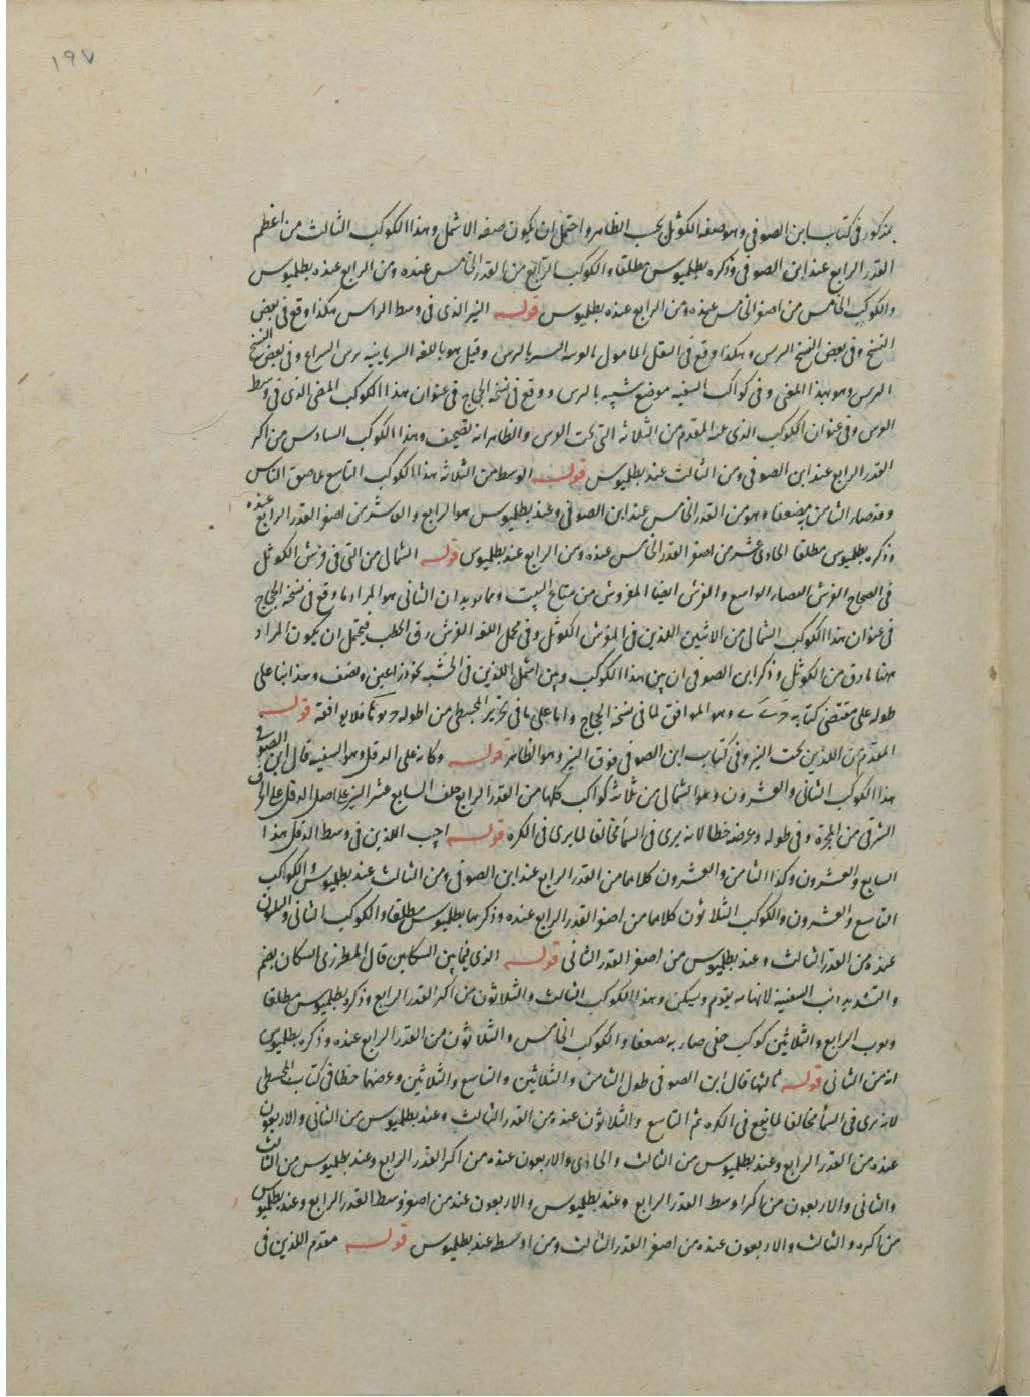 ١٩٧
بمذكور في كتاب ابن الصوفي وهو صفة الكوثل بحسب الظاهر واحتمل ان يكون صفة الاشمل وهذا الكوكب الثالث من اعظم
القدر الرابع عند ابن الصوفي وذكره بطلميوس مطلقا والكوكب الرابع من القدر الخامس عنده ومن الرابع عند بطلميوس
والكوكب الخامس من اصغر الخامس عنده ومن الرابع عند بطلميوس قوله النير الذي في وسط الراس هكذا وقع في بعض
النسخ وفي بعض النسخ الترس وهكذا وقع في النقل المامول وقيل هو باللغة السريانية وفي بعض النسخ
الترس وهو بهذا المعنى وفي كواكب السفينة موضع شبيه بالترس ووقع في نسخة الحجاج في عنوان هذا الكوكب المضي الذي في وسط
الترس وفي عنوان الكوكب الذي المتقدم من الثلاثة التي تحت الترس والظاهر انه تصحيف وهذا الكوكب السادس من اكبر
القدر الرابع عند ابن الصوفي ومن الثالث عند بطلميوس قوله الوسط من الثلاثة هذا الكوكب التاسع ملاصق الثامن
وقد صار الثامن مضعفا وهو من القدر الخامس عند ابن الصوفي وعند بطلميوس هو الرابع والعاشر من اصغر القدر الرابع عنده
وذكره بطلميوس مطلقا الحادي عشر من اصغر القدر الخامس عنده ومن الرابع عند بطلميوس قوله الشمالي من التي في فرش الكوثل
في الصحاح الفرش الفضاء الواسع والفرش ايضا المفروش من متاع البيت ومما يويد ان الثاني هو المراد ما وقع في نسخة الحجاج
في عنوان هذا الكوكب الشمالي من الاثنين اللذين في الفرش الكوثل وفي مجمل اللغة الفرش دق الحطب فيحتمل ان يكون المراد
ههنا ما دق من الكوثل وذكر ابن الصوفي ان بين هذا الكوكب وبين اشمل اللذين في الخشبة نحو ذراعين ونصف وهذا بنا على
طوله على مقتضى كتابه وهو الموافق لما في نسخة الحجاج واما على ما في تحرير المجسطي من ان طوله فلا يوافقه قوله
المتقدم من اللذين تحت النير وفي كتاب ابن الصوفي فوق النير وهو الظاهر قوله وكانه على الدقل وهو السفينة قال ابن الصوفي
هذا الكوكب الثاني والعشرون وهو الشمالي من ثلاثة كواكب كلها من القدر الرابع خلف السابع عشر النير على اصل الدقل على الحرف
الشرقي من المجرة وفي طوله وعرضه خطا لانه يرى في السما مخالفا لما يرى في الكرة قوله اجنب اللذين في وسط الدقل هذا
السابع والعشرون وكذا الثامن والعشرون كلاهما من القدر الرابع عند ابن الصوفي ومن الثالث عند بطلميوس والكواكب
التاسع والعشرون والكوكب الثلاثون كلاهما من اصغر القدر الرابع عنده وذكرهما بطلميوس مطلقا والكوكب الثاني والثلاثون
عنده من القدر الثالث وعند بطلميوس من اصغر القدر الثاني قوله الذي فيما بين السكانين قال المطرزي السكان بضم
والتشديد ذنب السفينة لانها به تقوم وتسكن وهذا الكوكب الثالث والثلاثون من اكبر القدر الرابع وذكره بطلميوس مطلقا
وبقرب الرابع والثلاثين كوكب خفي صار به مضعفا والكوكب الخامس والثلاثون من القدر الرابع عنده وذكره بطلميوس
انه من الثاني قوله ثالثها قال ابن الصوفي طول الثامن والثلاثين والتاسع والثلاثين وعرضهما خطا في كتاب المجسطي
لانه يرى في السما مخالفا لما يقع في الكرة ثم التاسع والثلاثون عنده من القدر الثالث وعند بطلميوس من الثاني والاربعون
عنده من القدر الرابع وعند بطلميوس من الثالث والحادي والاربعون عنده من اكبر القدر الرابع وعند بطلميوس من الثالث
والثاني والاربعون من اكبر اوسط القدر الرابع وعند بطلميوس والاربعون عنده من اصغر وسط القدر الرابع وعند بطلميوس
من اكبره والثالث والاربعون عنده من اصغر القدر الثالث ومن اوسطه عند بطلميوس قوله مقدم اللذين في